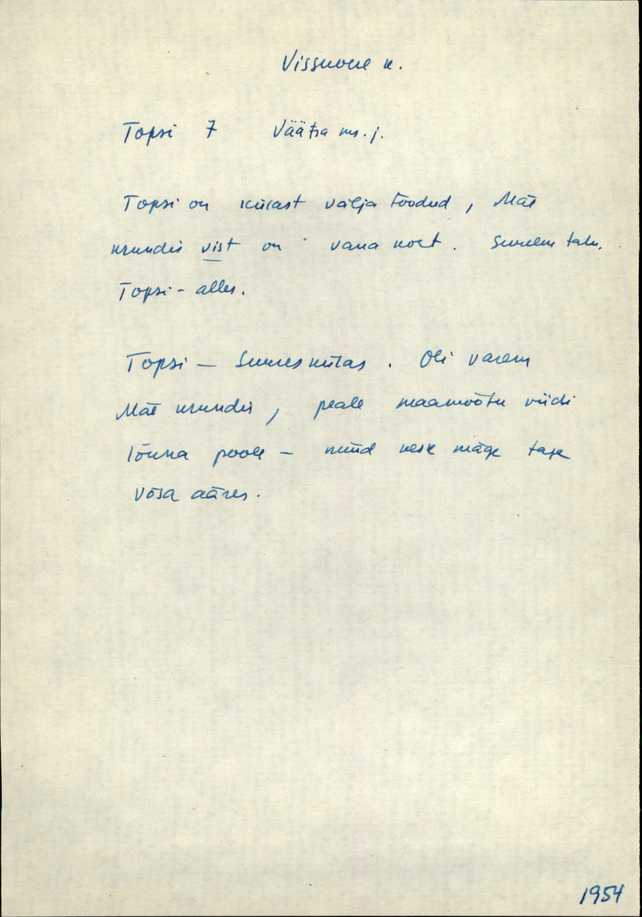 Vissuvere k.
Topsi 7 Väätsa ms. j.
Topsi on külast välja toodud, Mäe
krundis vist on vana koht. Suurem talu.
Topsi - alles.
Topsi — Suures külas. Oli varem
Mäe krundis, peale maamõõtu viidi
lõuna poole — nüüd kesk mäge taga
võsa ääres.
1954